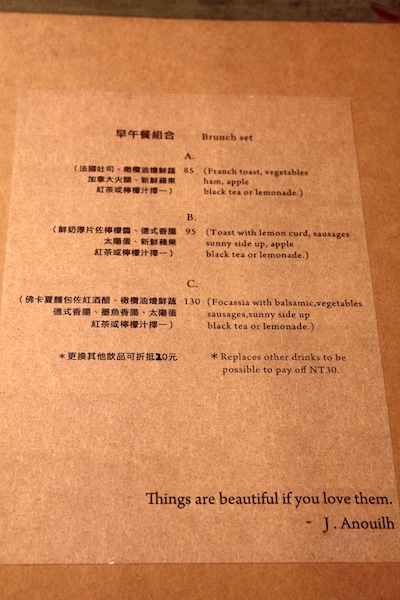 早午餐組合 Brunch set
A.
（法國吐司、橄欖油燴鮮蔬 85 (Franch toast, vegetables
加拿大火腿、新鮮蘋果 ham, apple
紅茶或檸檬汁擇一） black tea or lemonade.)
B.
（鮮奶厚片佐檸檬醬、德式香腸 95 (Toast with lemon curd, sausages
太陽蛋、新鮮蘋果 sunny side up, apple
紅茶或檸檬汁擇一） black tea or lemonade.)
C.
（佛卡夏麵包佐紅酒醋、橄欖油燴鮮蔬 130 (Focassia with balsamic,vegetables
德式香腸、墨魚香腸、太陽蛋 sausages,sunny side up
紅茶或檸檬汁擇一） black tea or lemonade.)
＊更換其他飲品可折抵20元 * Replaces other drinks to be
possible to pay off NT30.
Things are beautiful if you love them.
- J . Anouilh